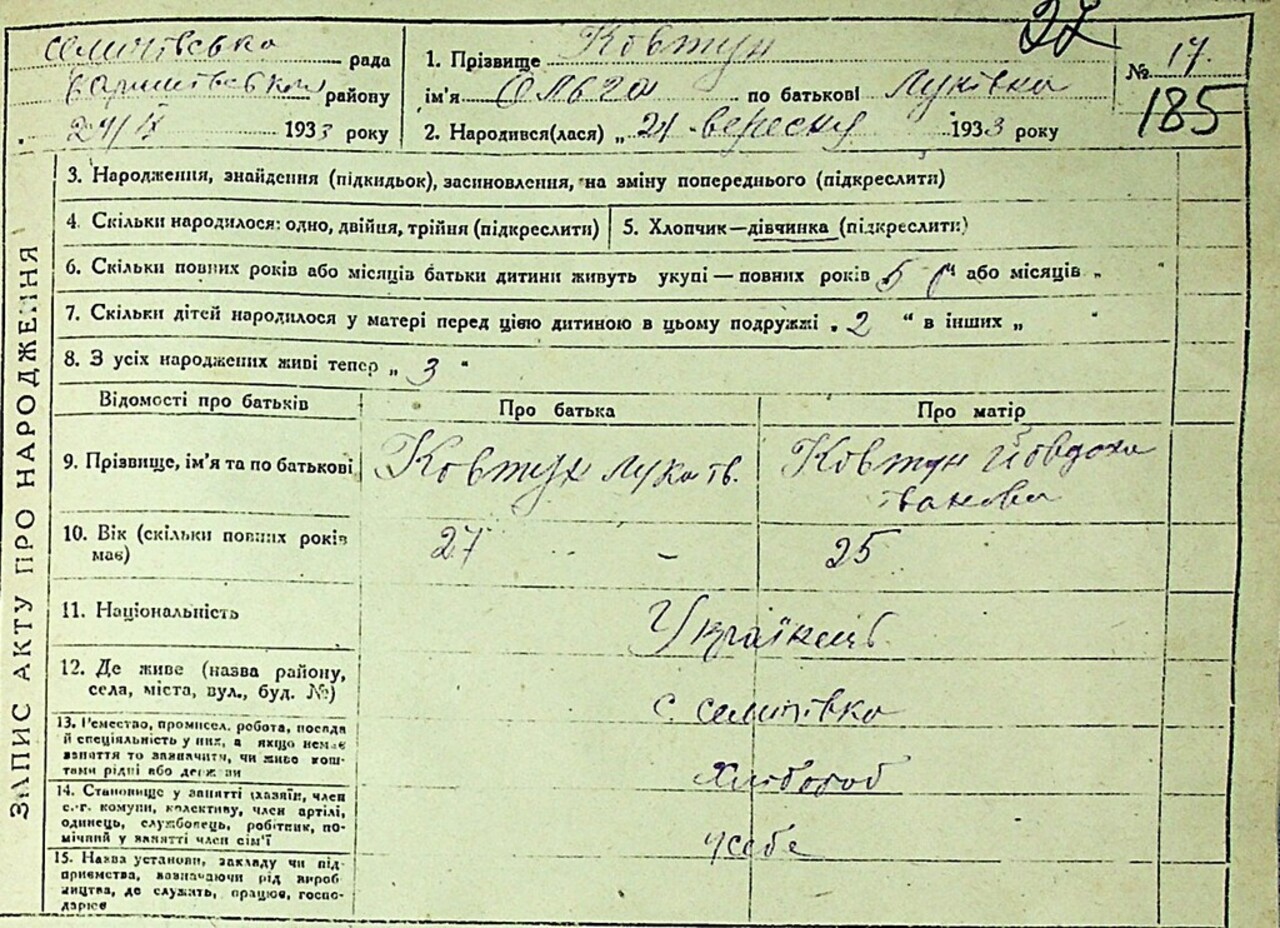 27
Селичівська рада
Баришівськ району
„ 24/IX 1933 року
1. Прізвище Ковтун
ім'я Ольга по батькові Луківна
2. Народився(лася) „ 21 вересну 1933 року
№ 17.
185
ЗАПИС АКТУ ПРО НАРОДЖЕННЯ
3. Народження, знайдення (підкидьок), засиновлення, на зміну попереднього (підкреслити)
4. Скільки народилося: одно, двійня, трійня (підкреслити)
5. Хлопчик—дівчинка (підкреслити)
6. Скільки повних років або місяців батьки дитини живуть укупі — повних років 5 р " або місяців „ "
7. Скільки дітей народилося у матері перед цією дитиною в цьому подружжі „ 2 " в інших „ "
8. З усіх народжених живі тепер „ 3 "
Відомості про батьків
Про батька
Про матір
9. Прізвище, ім'я та по батькові
Ковтун Лука Ів.
Ковтун Йовдоха
Іванова
10. Вік (скільки повних років
має)
27
–
25
11. Національність
Українець
12. Де живе (назва району,
села, міста, вул., буд. №)
с. Селичівка
13. Ремество, промисел, робота, посада
й спеціяльність у них, а якщо немає
заняття то зазначити, чи живе кош-
тами рідні або держави
Хлібороб
14. Становище у занятті (хазяїн, член
с.-г. комуни, колективу, член артілі,
одинець, службовець, робітник, по-
мічний у занятті член сім'ї
у себе
15. Назва установи, закладу чи під-
приємства, зазначаючи рід вироб-
ництва, де служить, працює, госпо-
дарює